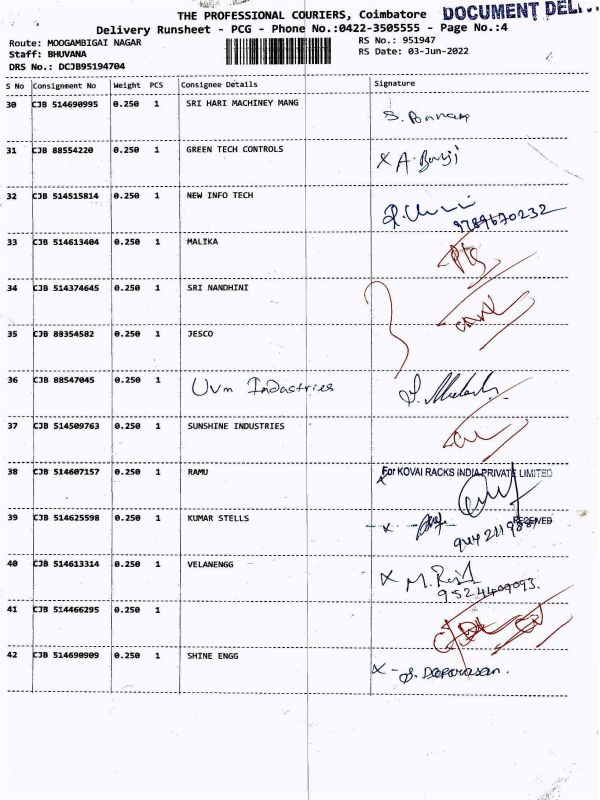 THE PROFESSIONAL COURIERS, Coimbatore
DOCUMENT
Delivery Runsheet - PCG - Phone No.:0422-3505555 - Page No.:4
Route: MOOGAMBIGAI NAGAR
RS No.: 951947
Staff: BHUVANA
RS Date: 03-Jun-2022
DRS No.: DCJB95194704
S No Consignment No Weight PCS Consignee Details Signature
30 CJB 514690995 0.250 1 SRI HARI MACHINEY MANG
31 CJB 88554220 0.250 1 GREEN TECH CONTROLS
32 CJB 514515814 0.250 1 NEW INFO TECH
9789670232
33 CJB 514613404 0.250 1 MALIKA
34 CJB 514374645 0.250 1 SRI NANDHINI
35 CJB 88354582 0.250 1 JESCO
36 CJB 88547045 0.250 1 Uvm Indastries
37 CJB 514509763 0.250 1 SUNSHINE INDUSTRIES
38 CJB 514607157 0.250 1 RAMU For KOVAI RACKS INDIA PRIVATE LIMITED
39 CJB 514625598 0.250 1 KUMAR STELLS RECEIVED
40 CJB 514613314 0.250 1 VELANENGG
9524409093.
41 CJB 514466295 0.250 1
42 CJB 514690909 0.250 1 SHINE ENGG